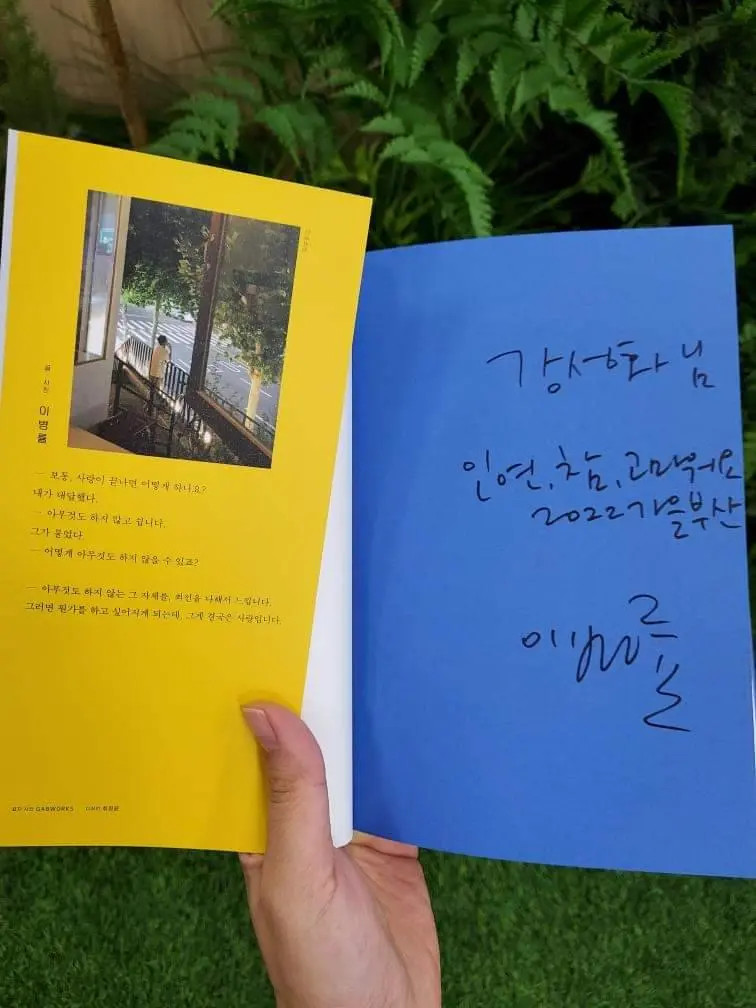 글 사진 이병률
— 보통, 사랑이 끝나면 어떻게 하나요?
내가 대답했다.
— 아무것도 하지 않고 쉽니다.
그가 물었다.
— 어떻게 아무것도 하지 않을 수 있죠?
— 아무것도 하지 않는 그 자체를, 최선을 다해서 느낍니다.
그러면 뭔가를 하고 싶어지게 되는데, 그게 결국은 사랑입니다.
표지 사진 GABWORKS 디자인 최정윤
강서화 님
인연, 참, 고마워요
2022 가을 부산
이병률